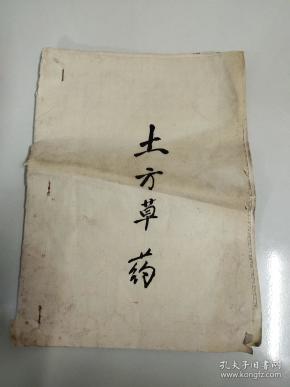 土方草药
孔夫子旧书网